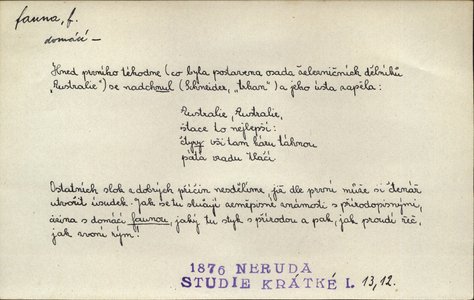 fauna, f.
domácí –
Hned prvního téhodne (co byla postavena osada železničních dělníků
„Australie") se nadchnul (Schneider, „trhan") a jeho ústa zapěla:
Australie, Australie,
stace to nejlepší:
čtyry vši tam káru táhnou
pátá vzadu tlačí.
Ostatních slok z dobrých příčin nesdělíme, již dle první může si čtenář
utvořit úsudek. Jak se tu slučují zeměpisné známosti s přírodopisnými,
s domácí faunou, jaký tu styk s přírodou a pak, jak proudí řeč,
jak zvoní rým.
1876 NERUDA
STUDIE KRÁTKÉ I. 13,12.